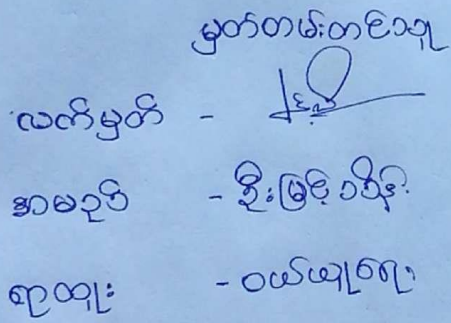 မှတ်တမ်းတင်သူ
လက်မှတ် -
အမည် - ဦးမြင့်သိန်း
ရာထူး - ဝယ်ယူရေး